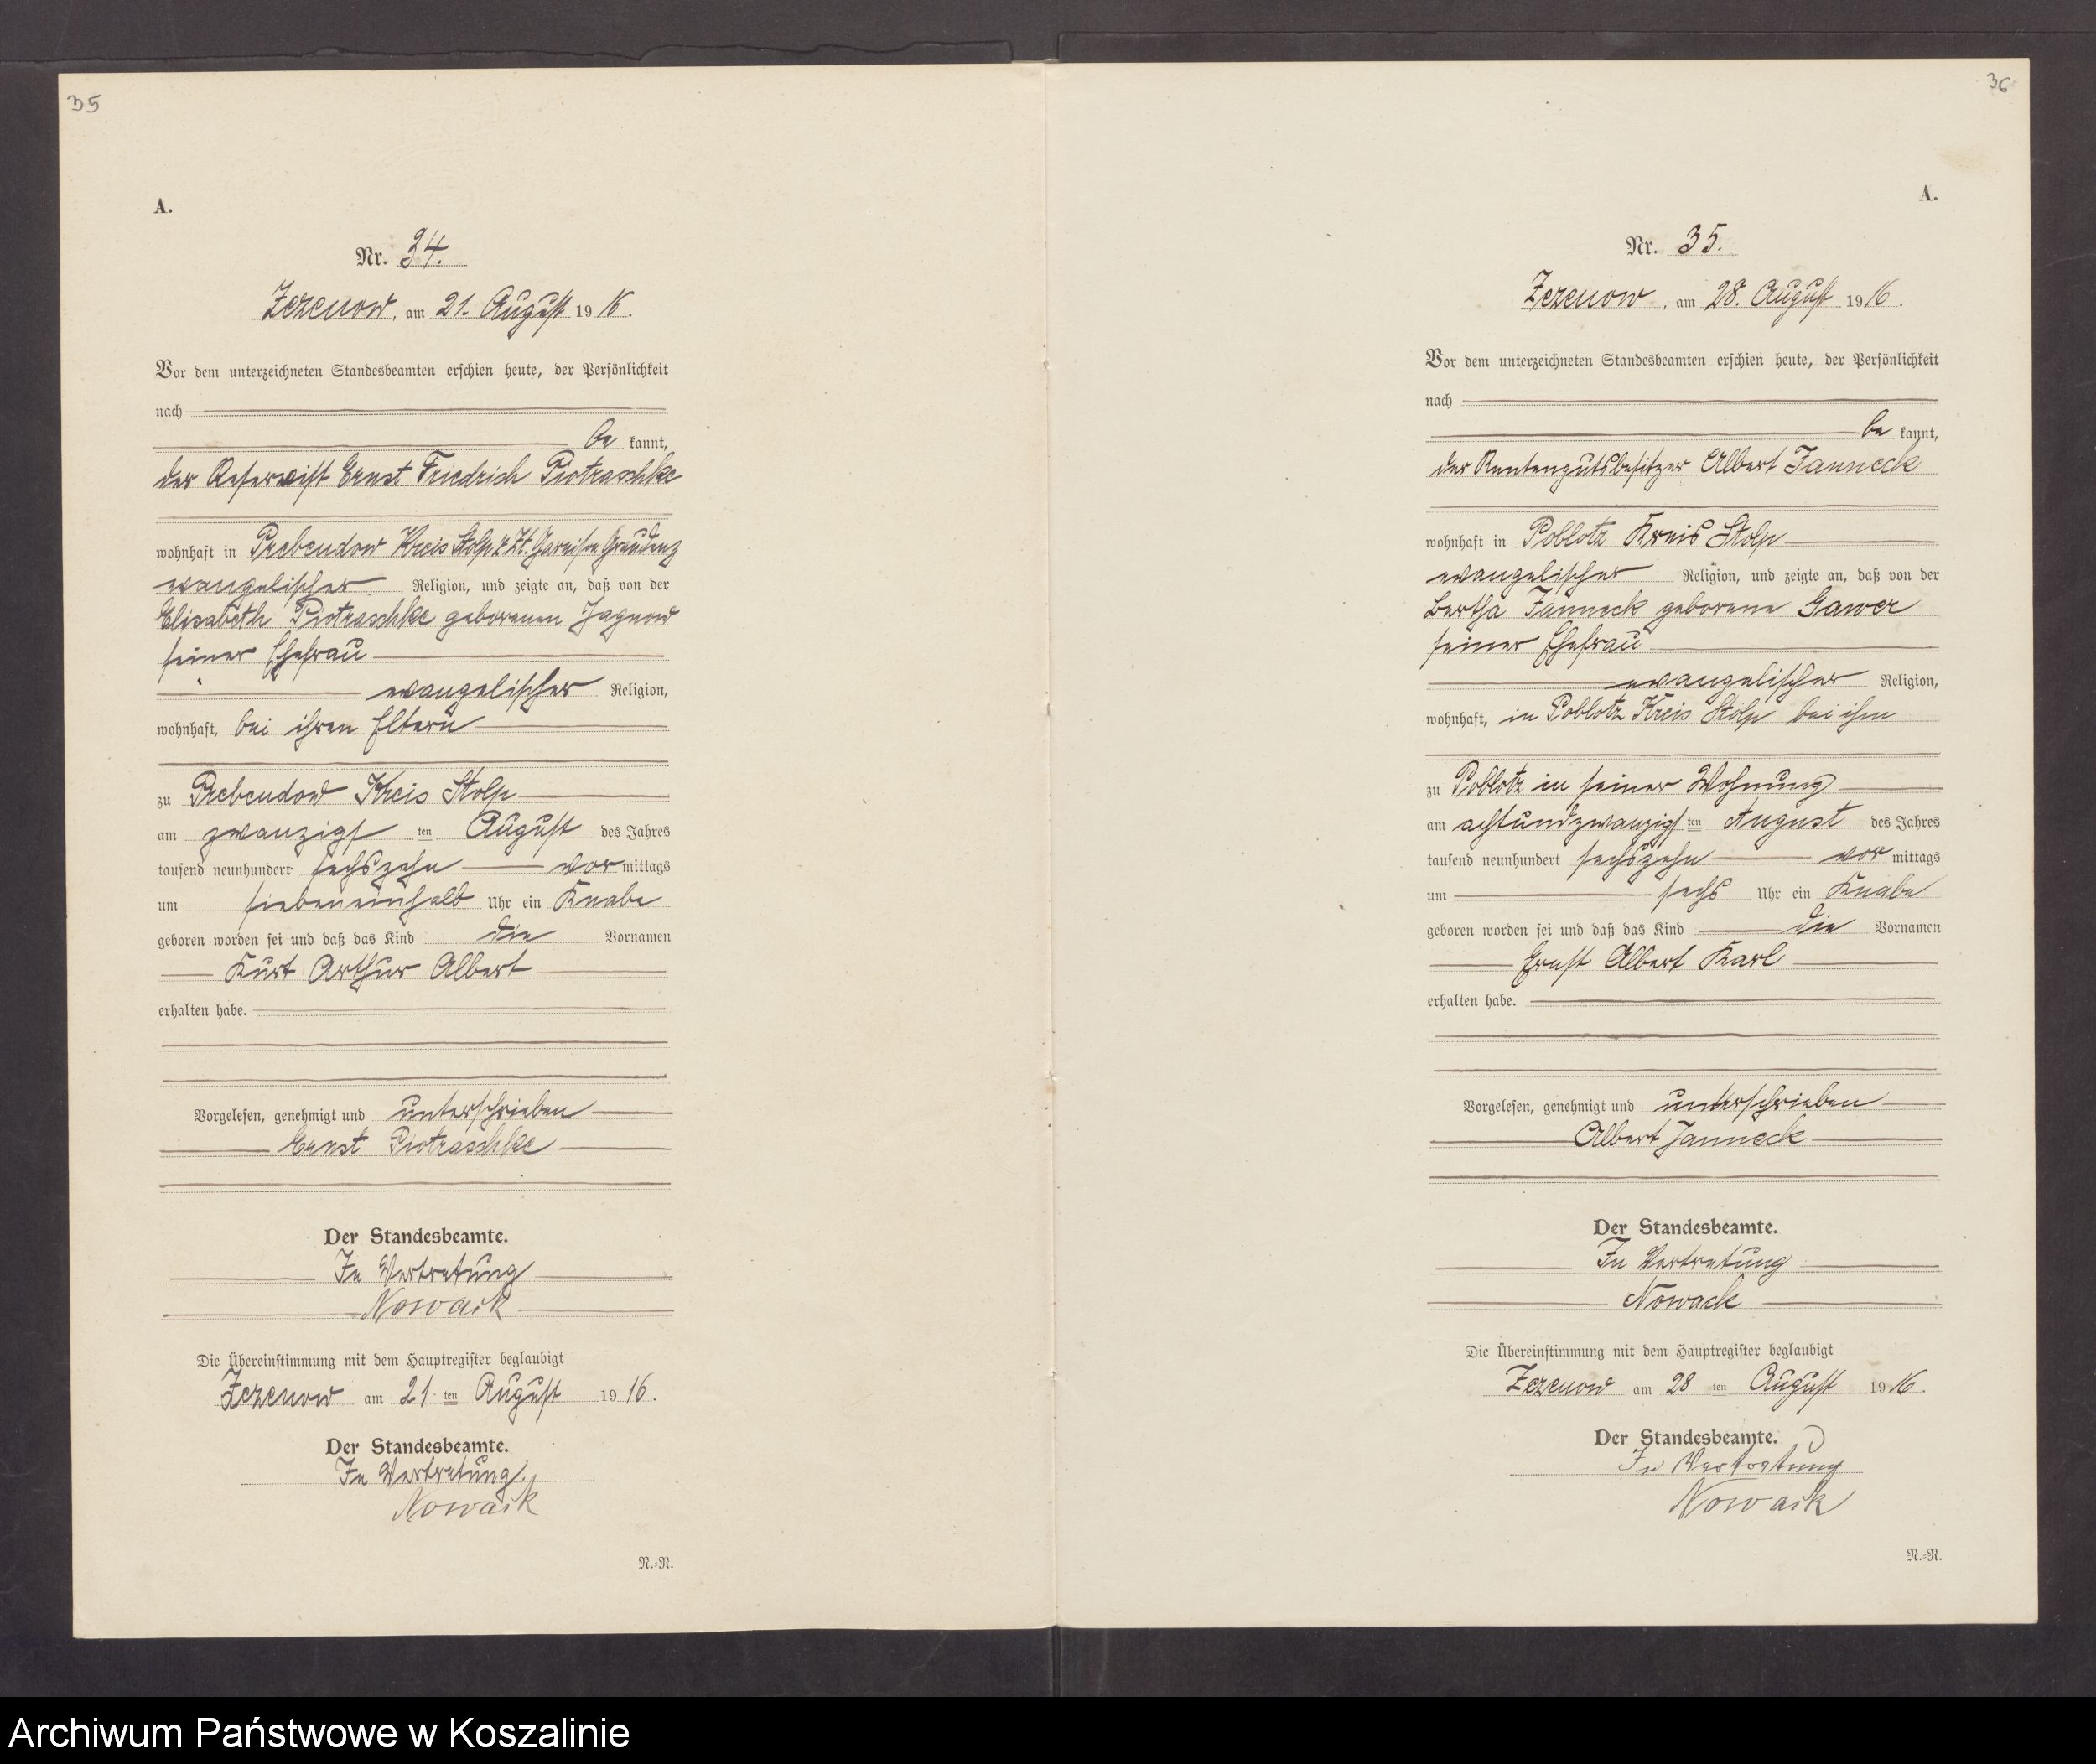 35
A.
Nr. 34.
Zezenow, am 21. August 1916.
Vor dem unterzeichneten Standesbeamten erschien heute, der Persönlichkeit
nach
be kannt,
der Reservist Ernst Friedrich Piotraschke
wohnhaft in Prebendow Kreis Stolp z. Zt. Garnison Graudenz
evangelischer Religion, und zeigte an, daß von der
Elisabeth Piotraschke geborenen Jagnow
seiner Ehefrau
evangelischer Religion,
wohnhaft, bei ihren Eltern
zu Prebendow Kreis Stolp
am zwanzigs ten August des Jahres
tausend neunhundert sechszehn vor mittags
um siebeneinhalb Uhr ein Knabe
geboren worden sei und daß das Kind die Vornamen
Kurt Arthur Albert
erhalten habe.
Vorgelesen, genehmigt und unterschrieben
Ernst Piotraschke
Der Standesbeamte.
In Vertretung
Nowack
Die Übereinstimmung mit dem Hauptregister beglaubigt
Zezenow am 21. ten August 1916.
Der Standesbeamte.
In Vertretung.
Nowack
N.=N.
36
A.
Nr. 35.
Zezenow, am 28. August 1916.
Vor dem unterzeichneten Standesbeamten erschien heute, der Persönlichkeit
nach
be kannt,
der Rentengutsbesitzer Albert Janneck
wohnhaft in Poblotz Kreis Stolp
evangelischer Religion, und zeigte an, daß von der
Bertha Janneck geborene Gawer
seiner Ehefrau
evangelischer Religion,
wohnhaft, in Poblotz Kreis Stolp bei ihm
zu Poblotz in seiner Wohnung
am achtundzwanzigs ten August des Jahres
tausend neunhundert sechszehn vor mittags
um sechs Uhr ein Knabe
geboren worden sei und daß das Kind die Vornamen
Ernst Albert Karl
erhalten habe.
Vorgelesen, genehmigt und unterschrieben
Albert Janneck
Der Standesbeamte.
In Vertretung
Nowack
Die Übereinstimmung mit dem Hauptregister beglaubigt
Zezenow am 28 ten August 1916.
Der Standesbeamte.
In Vertretung
Nowack
N.=N.
Archiwum Państwowe w Koszalinie